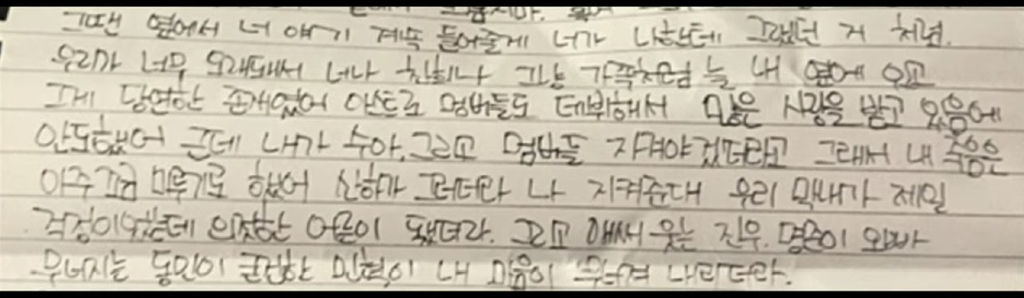 그땐 옆에서 너 얘기 계속 들어줄게 너가 나한테 그랬던 거 처럼.
우리가 너무 오래돼서 너나 친희나 그냥 가족처럼 늘 내 옆에 있고
그게 당연한 존재였어 아스트로 멤버들도 데뷔해서 많은 사랑을 받고 있음에
안도했어 근데 내가 수아, 그리고 멤버들 지켜야겠더라고 그래서 내 죽음은
아주 조금 미루기로 했어 산하가 그러더라 나 지켜준대 우리 막내가 제일
걱정이었는데 의젓한 어른이 됐더라. 그리고 애써 웃는 진우, 명준이 와봐
무너지는 동민이 굳건한 민혁이 내 마음이 무너져 내리더라.